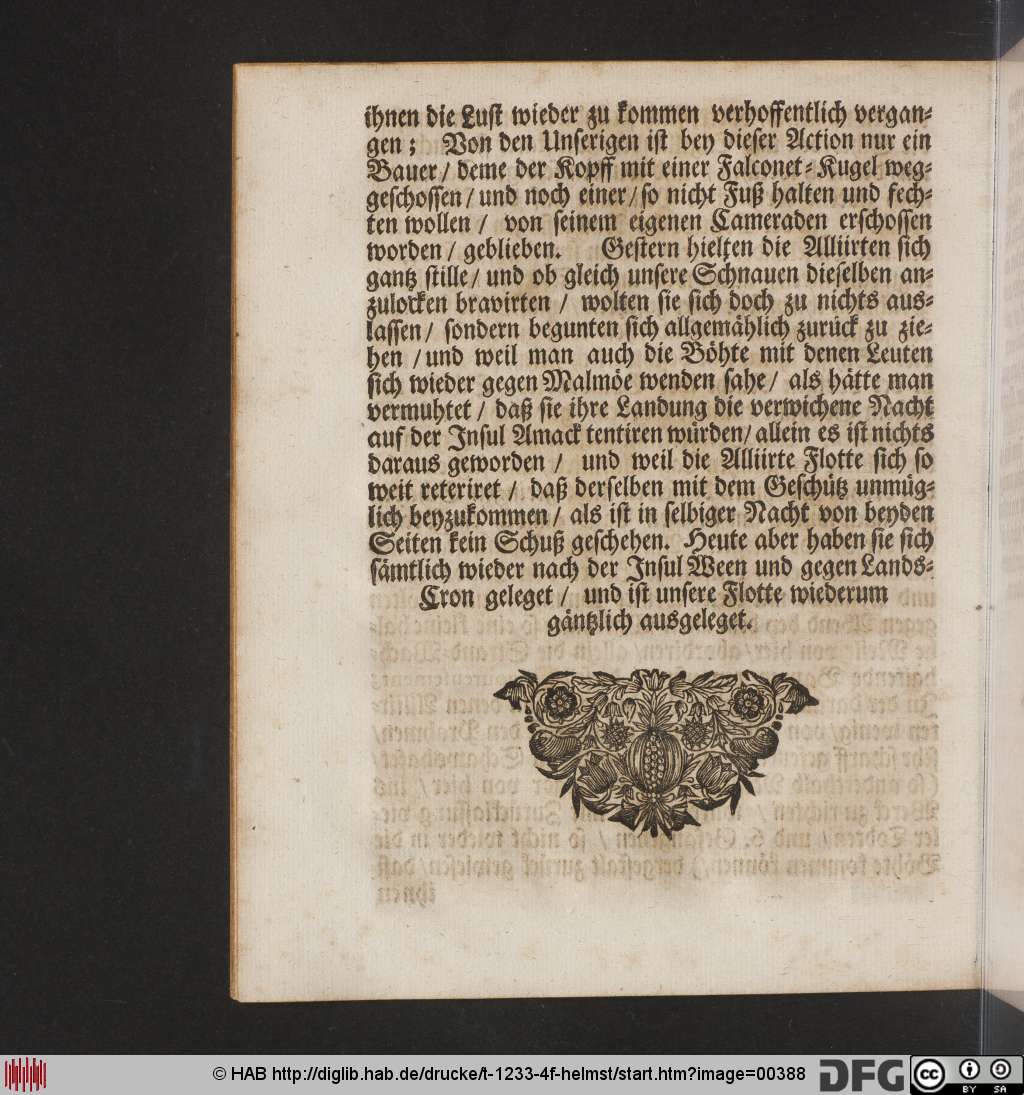 ihnen die Lust wieder zu kommen verhoffentlich vergan-
gen ; Von den Unserigen ist bey dieser Action nur ein
Bauer / deme der Kopff mit einer Falconet-Kugel weg-
geschossen / und noch einer / so nicht Fuß halten und fech-
ten wollen / von seinem eigenen Cameraden erschossen
worden / geblieben. Gestern hielten die Alliirten sich
gantz stille / und ob gleich unsere Schnauen dieselben an-
zulocken bravirten / wolten sie sich doch zu nichts aus-
lassen / sondern begunten sich allgemählich zurück zu zie-
hen / und weil man auch die Böhte mit denen Leuten
sich wieder gegen Malmöe wenden sahe / als hätte man
vermuhtet / daß sie ihre Landung die verwichene Nacht
auf der Insul Amack tentiren würden / allein es ist nichts
daraus geworden / und weil die Alliirte Flotte sich so
weit reteriret / daß derselben mit dem Geschütz unmüg-
lich beyzukommen / als ist in selbiger Nacht von beyden
Seiten kein Schuß geschehen. Heute aber haben sie sich
sämtlich wieder nach der Insul Ween und gegen Lands-
Cron geleget / und ist unsere Flotte wiederum
gäntzlich ausgeleget.
© HAB http://diglib.hab.de/drucke/t-1233-4f-helmst/start.htm?image=00388
DFG
cc
BY SA